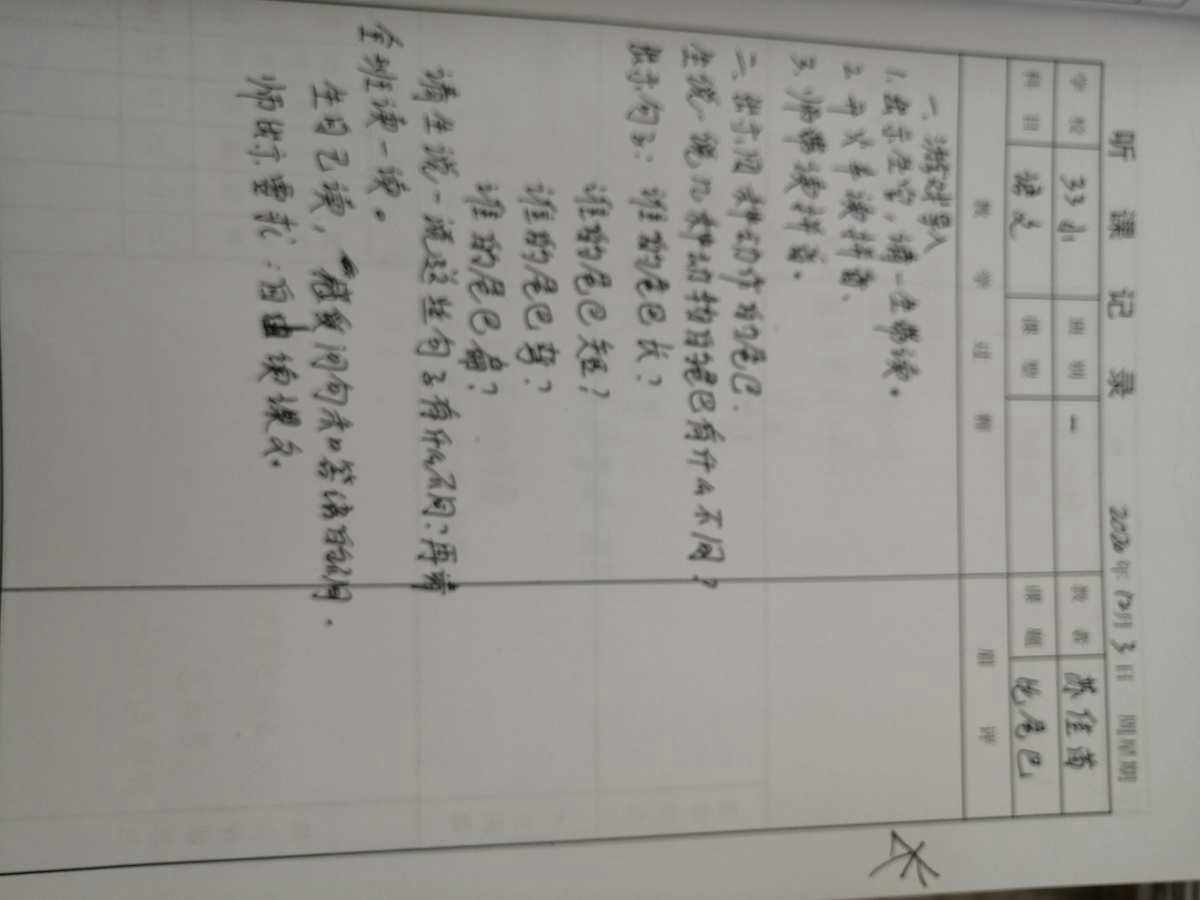 听课记录
2020年12月3日 周星期
学校 班别 一 教者
科目 语文 课型 课题 比尾巴
教学过程 旁评
一、游戏导入
1.出示生字,请一生带读。
2.开火车读拼音、
3、师带读拼音。
二、出示图 动作的尾巴.
生说一说几种动物的尾巴有什么不同?
出示句子: 谁的尾巴长?
谁的尾巴短?
谁的尾巴弯?
谁的尾巴扁?
请生说一说这些句子有什么不同?再请
全班读一读。
生自己读, 问句 答语的 .
师出示要求:自由读课文.